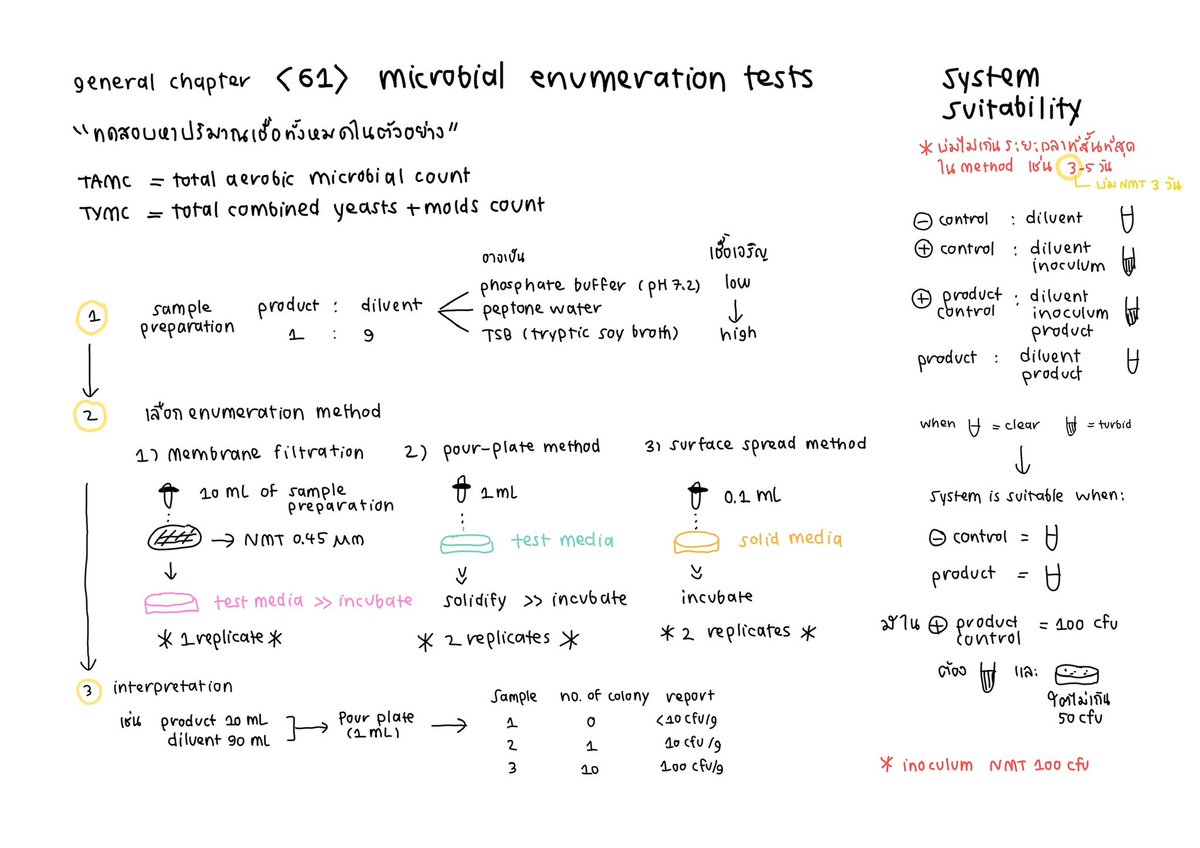 general chapter <61> microbial enumeration tests
"ทดสอบหาปริมาณเชื้อทั้งหมดในตัวอย่าง"
TAMC = total aerobic microbial count
TYMC = total combined yeasts + molds count
1 sample preparation
product : diluent
1 : 9
อาจเป็น
phosphate buffer (pH 7.2)
peptone water
TSB (tryptic soy broth)
เชื้อเจริญ
low
↓
high
2 เลือก enumeration method
1) membrane filtration
10 mL of sample
preparation
→ NMT 0.45 µm
test media >> incubate
* 1 replicate *
2) pour-plate method
1 mL
test media
solidify >> incubate
* 2 replicates *
3) surface spread method
0.1 mL
solid media
incubate
* 2 replicates *
3 interpretation
เช่น product 10 mL
diluent 90 mL
Pour plate
(1 mL)
sample no. of colony report
1 0 <10 cfu/g
2 1 10 cfu/g
3 10 100 cfu/g
system
suitability
* บ่มไม่เกินระยะเวลาที่สั้นที่สุด
ใน method เช่น 3-5 วัน
บ่ม NMT 3 วัน
⊖ control : diluent
⊕ control : diluent
inoculum
⊕ product control : diluent
inoculum
product
product : diluent
product
when = clear = turbid
↓
system is suitable when:
⊖ control =
product =
ถ้าใน ⊕ product control = 100 cfu
ต้อง และ
50 cfu
* inoculum NMT 100 cfu